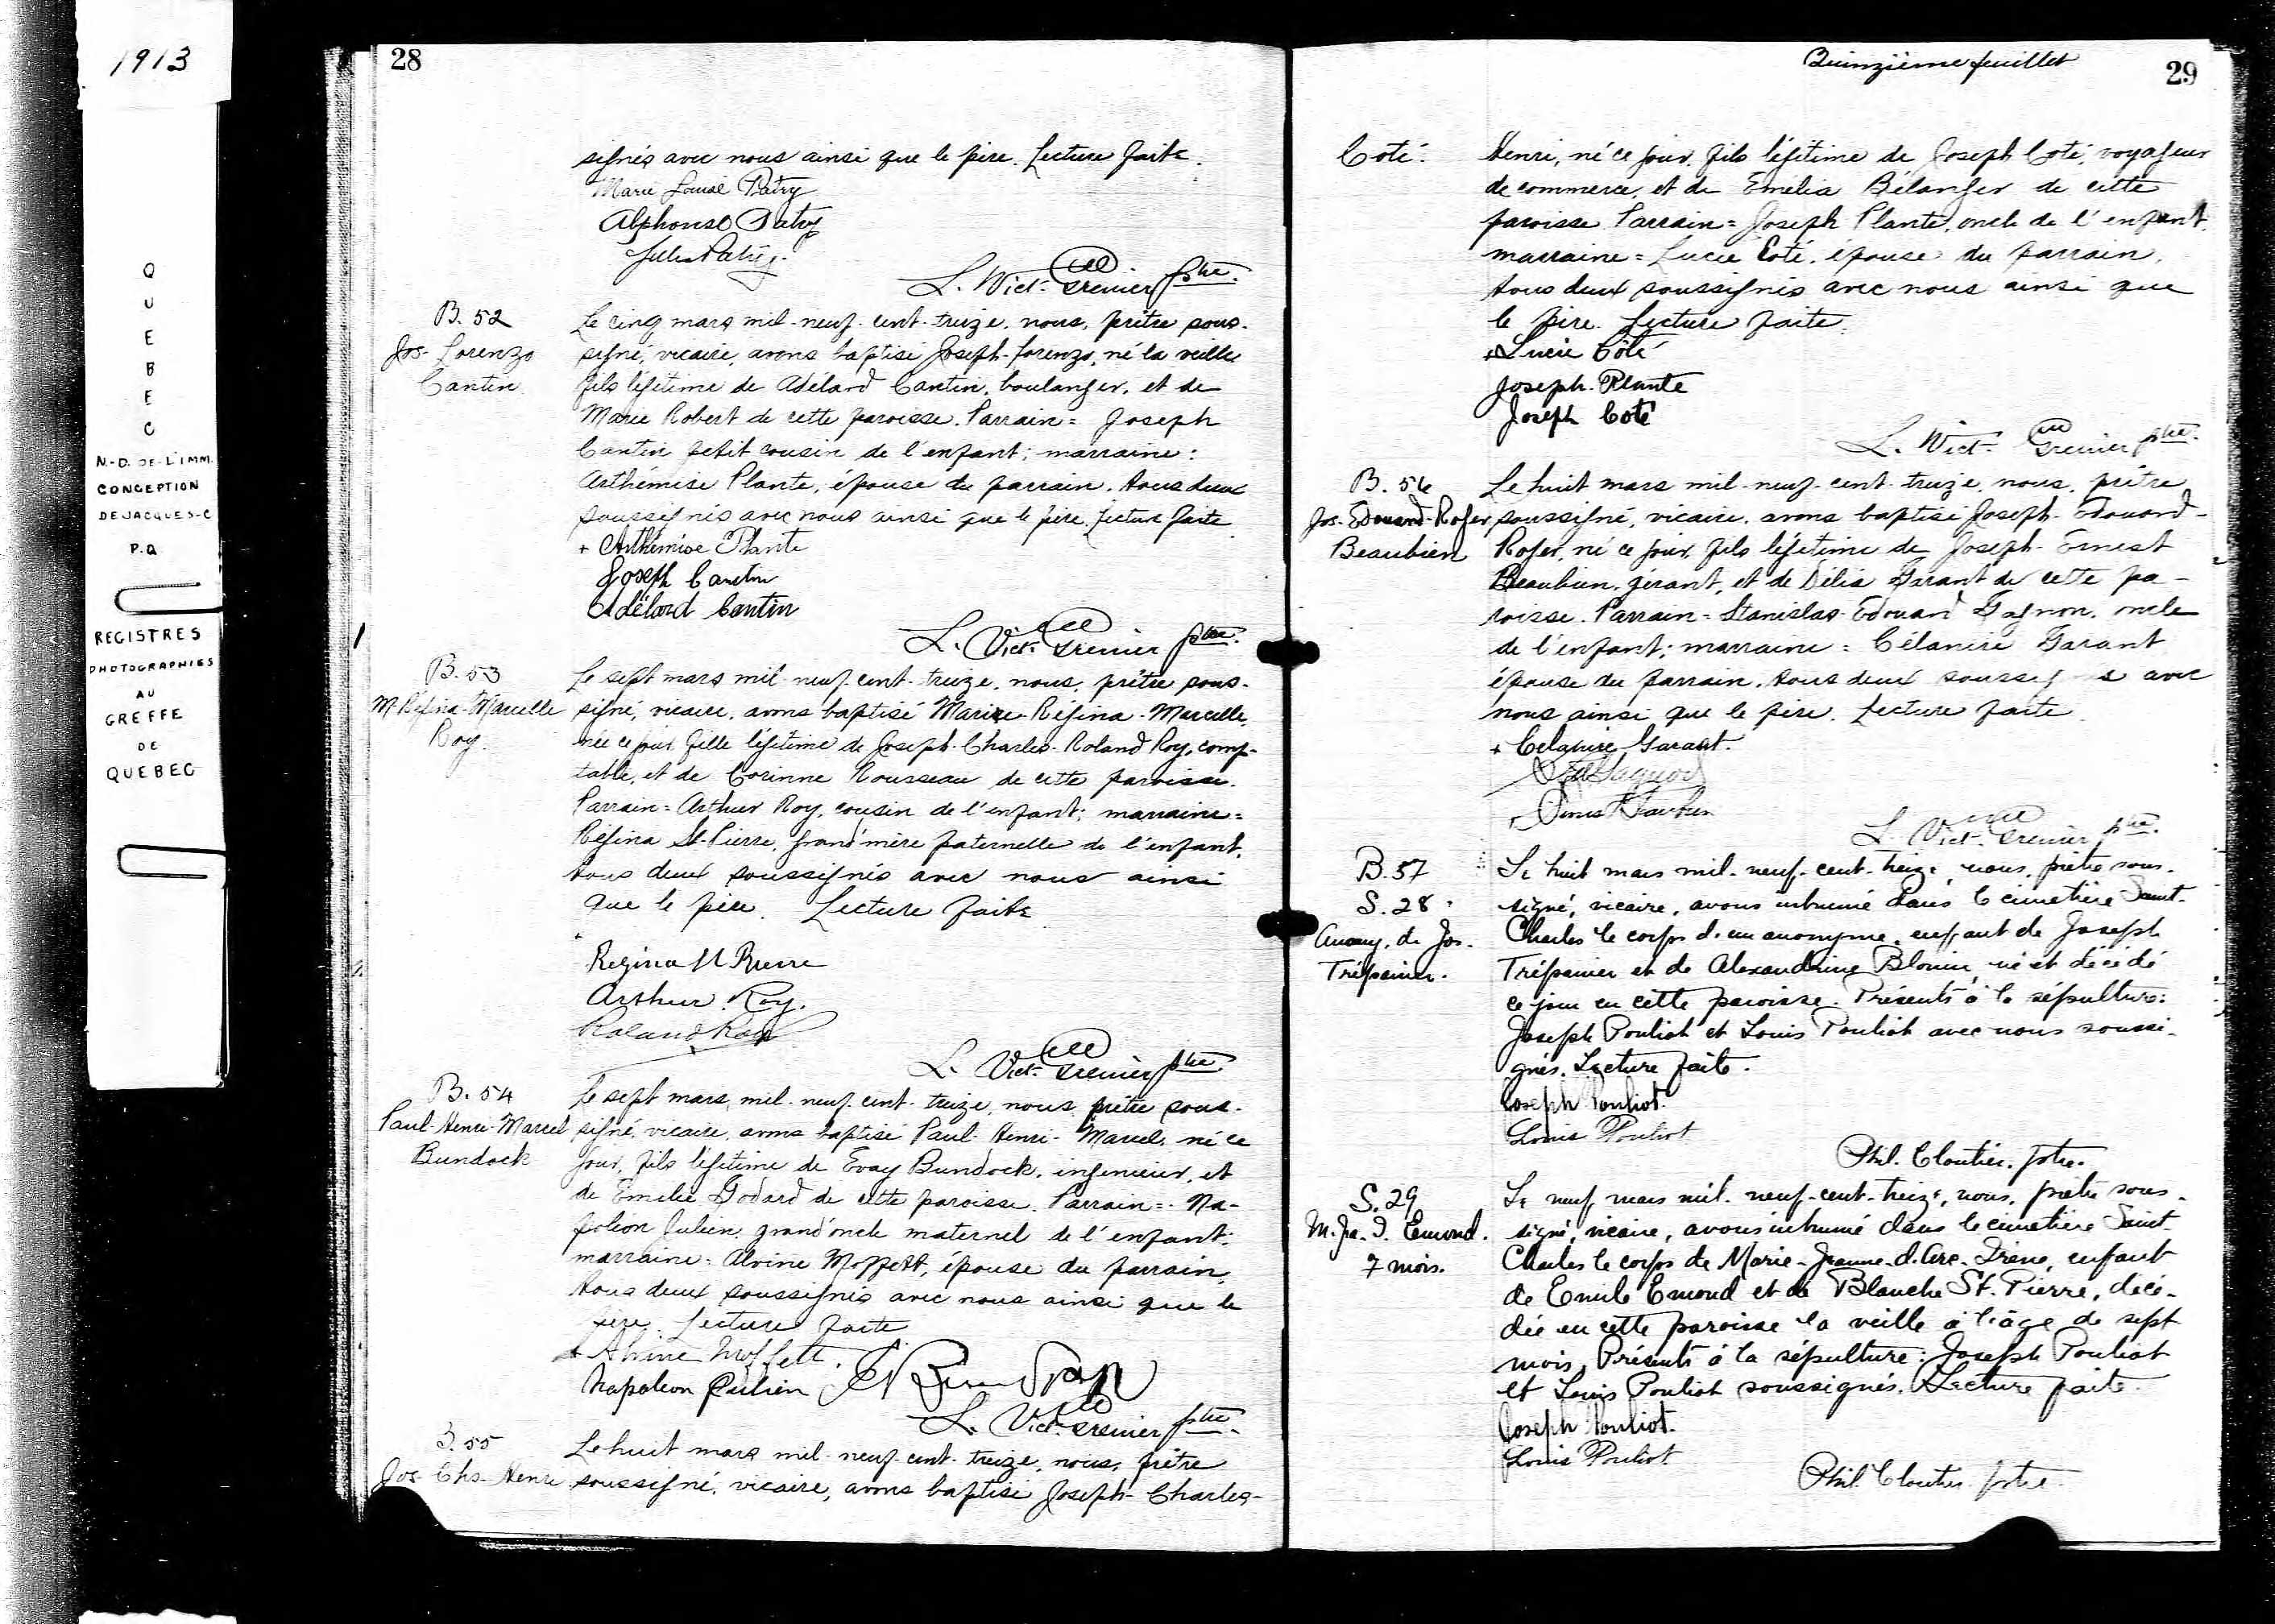 1913
QUEBEC
N.-D. DE-L'IMM.
CONCEPTION
DE JACQUES-C
P.Q
REGISTRES
PHOTOGRAPHIES
AU
GREFFE
DE
QUEBEC
28
signés avec nous ainsi que le père. Lecture faite.
Marie Louise Patry
Alphonse Patry
Jules Patry
L. Vict. Grenier ptre.
B. 52
Jos-Lorenzo
Cantin
Le cinq mars mil-neuf-cent-treize, nous, prêtre sous-
signé, vicaire, avons baptisé Joseph-Lorenzo, né la veille
fils légitime de Adélard Cantin, boulanger, et de
Marie Robert de cette paroisse. Parrain = Joseph
Cantin petit cousin de l'enfant; marraine:
Arthémise Plante, épouse du parrain, tous deux
soussignés avec nous ainsi que le père. Lecture faite
+ Arthémise Plante
Joseph Cantin
Adélard Cantin
L. Vict. Grenier ptre.
B. 53
M-Régina-Marcelle
Roy.
Le sept mars mil-neuf-cent-treize, nous, prêtre sous-
signé, vicaire, avons baptisé Marie-Régina-Marcelle,
née ce jour, fille légitime de Joseph-Charles-Roland Roy, comp-
table, et de Corinne Rousseau de cette paroisse.
Parrain = Arthur Roy, cousin de l'enfant; marraine =
Régina St-Pierre, grand'mère paternelle de l'enfant,
tous deux soussignés avec nous ainsi
que le père. Lecture faite
+
Regina St Pierre
Arthur Roy.
Roland Roy
L. Vict. Grenier ptre
B. 54
Paul-Henri-Marcel
Bundock
Le sept mars, mil-neuf-cent-treize, nous, prêtre sous-
signé, vicaire, avons baptisé Paul-Henri-Marcel, né ce
jour, fils légitime de Evay Bundock, ingénieur, et
de Emélie Godard de cette paroisse. Parrain = Na-
poléon Julien, grand'oncle maternel de l'enfant;
marraine = Alvine Moffett, épouse du parrain,
tous deux soussignés avec nous ainsi que le
père. Lecture faite
+ Alvine Moffett.
Napoleon Julien
L. Vict. Grenier ptre.
B. 55
Jos-Chs-Henri
Le huit mars mil-neuf-cent-treize, nous, prêtre
soussigné, vicaire, avons baptisé Joseph-Charles-
Quinzième feuillet
29
Coté.
Henri, né ce jour, fils légitime de Joseph Coté, voyageur
de commerce, et de Emélia Bélanger de cette
paroisse Parrain = Joseph Plante, oncle de l'enfant.
marraine = Lucie Coté, épouse du parrain,
tous deux soussignés avec nous ainsi que
le père. Lecture faite.
+ Lucie Côté
Joseph. Plante
Joseph Coté
L. Vict. Grenier ptre.
B. 56
Jos-Edouard-Roger
Beaubien
Le huit mars mil-neuf-cent-treize, nous, prêtre
soussigné, vicaire, avons baptisé Joseph-Edouard-
Roger, né ce jour, fils légitime de Joseph-Ernest
Beaubien, gérant, et de Délia Garant de cette pa-
roisse. Parrain = Stanislas-Edouard Gagnon, oncle
de l'enfant; marraine = Célanire Garant
épouse du parrain, tous deux soussignés avec
nous ainsi que le père. Lecture faite
+ Celanire Garant.
L. Vict. Grenier ptre.
B. 57
S. 28
Anony. de Jos.
Trépanier.
Le huit mars mil-neuf-cent-treize, nous, prêtre sous-
signé, vicaire, avons inhumé dans le cimetière Saint-
Charles le corps d'un anonyme, enfant de Joseph
Trépanier et de Alexandrine Blouin, né et décédé
ce jour en cette paroisse. Présents à la sépulture:
Joseph Pouliot et Louis Pouliot avec nous soussi-
gnés. Lecture faite.
Joseph Pouliot.
Louis Pouliot
Phil. Cloutier. ptre.
S. 29
M.-Jne-d. Emond.
7 mois.
Le neuf mars mil-neuf-cent-treize, nous, prêtre sous-
signé, vicaire, avons inhumé dans le cimetière Saint-
Charles le corps de Marie-Jeanne-d'Arc-Irène, enfant
de Emile Emond et de Blanche St-Pierre, décé-
dée en cette paroisse la veille à l'âge de sept
mois. Présents à la sépulture: Joseph Pouliot
et Louis Pouliot soussignés. Lecture faite.
Joseph Pouliot.
Louis Pouliot
Phil. Cloutier ptre